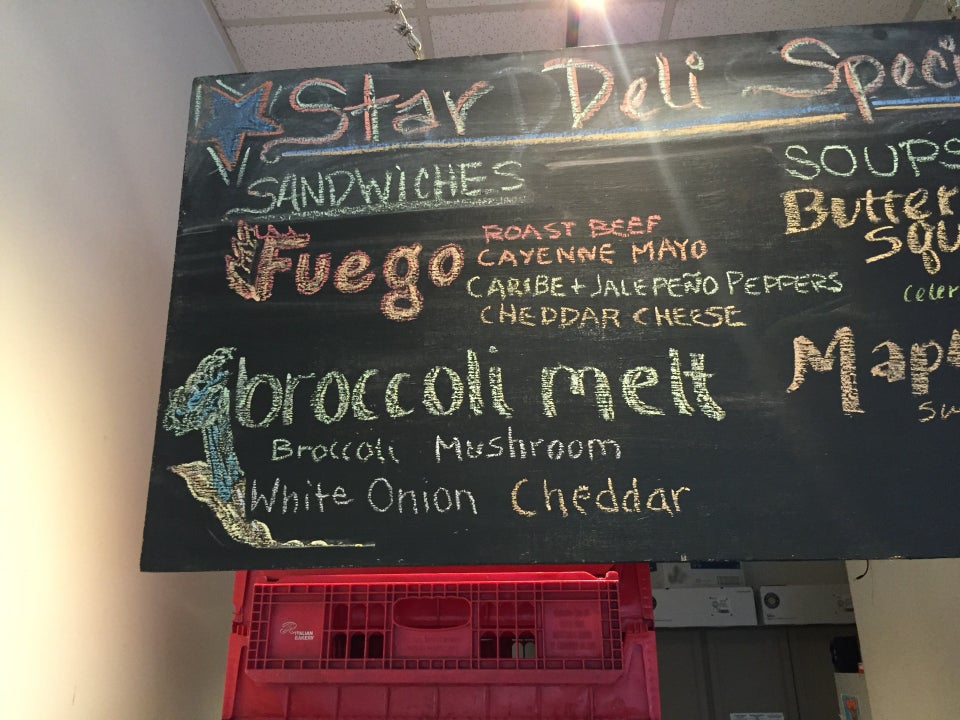 Star Deli Speci
SANDWICHES
Fuego
ROAST BEEF
CAYENNE MAYO
CARIBE + JALEPEÑO PEPPERS
CHEDDAR CHEESE
broccoli melt
Broccoli Mushroom
White Onion Cheddar
SOUPS
Butter
squ
celer
Map
sw
ITALIAN
BAKERY